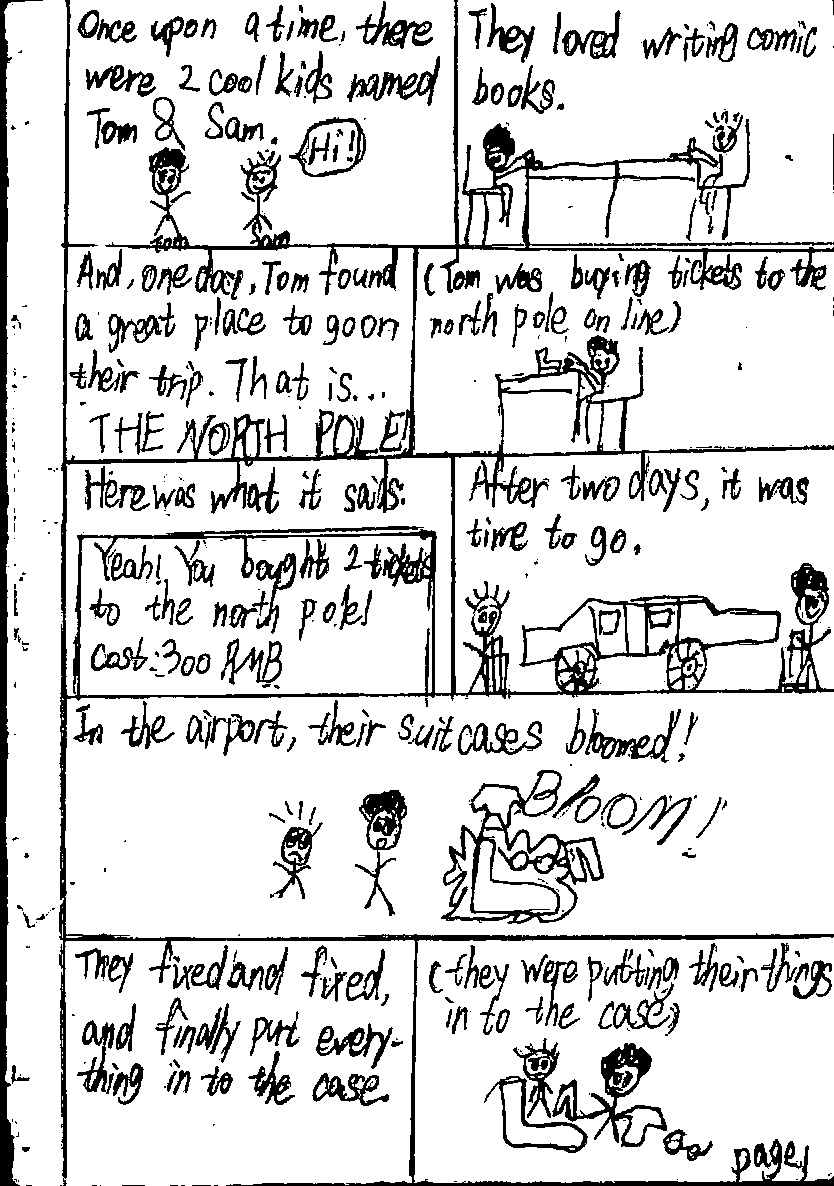 Once upon a time, there
were 2 cool kids named
Tom & Sam.
Hi!
Tom
Sam
They loved writing comic
books.
And, one day, Tom found
a great place to go on
their trip. That is...
THE NORTH POLE!
(Tom was buying tickets to the
north pole on line)
Here was what it said:
Yeah! You bought 2 tickets
to the north pole!
Cost: 300 RMB
After two days, it was
time to go.
In the airport, their suitcases bloomed!
BLOOM!
They fixed and fixed,
and finally put every-
thing in to the case.
(they were putting their things
in to the case)
page 1